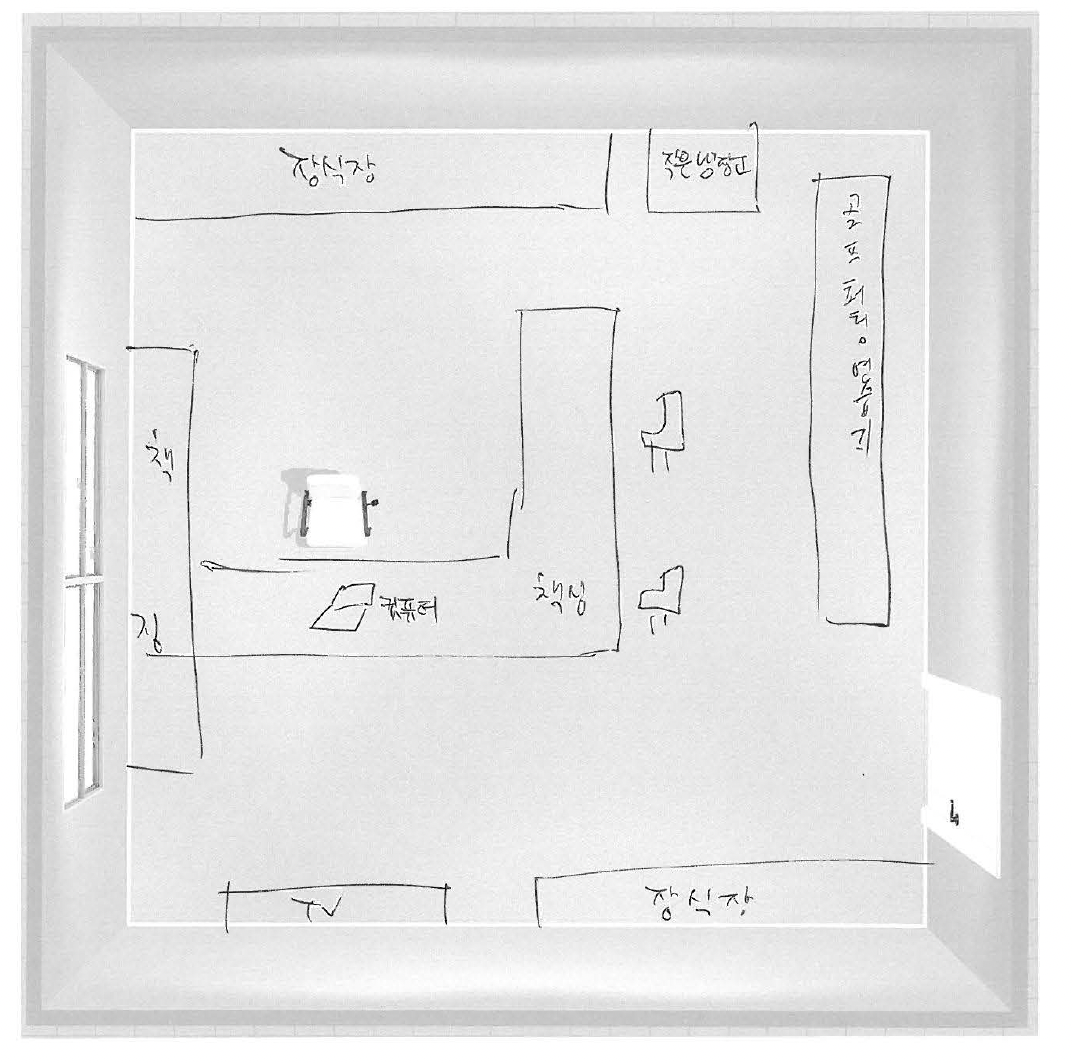 장식장
작은냉장고
골프퍼팅연습기
책
장
컴퓨터
책상
TV
장식장